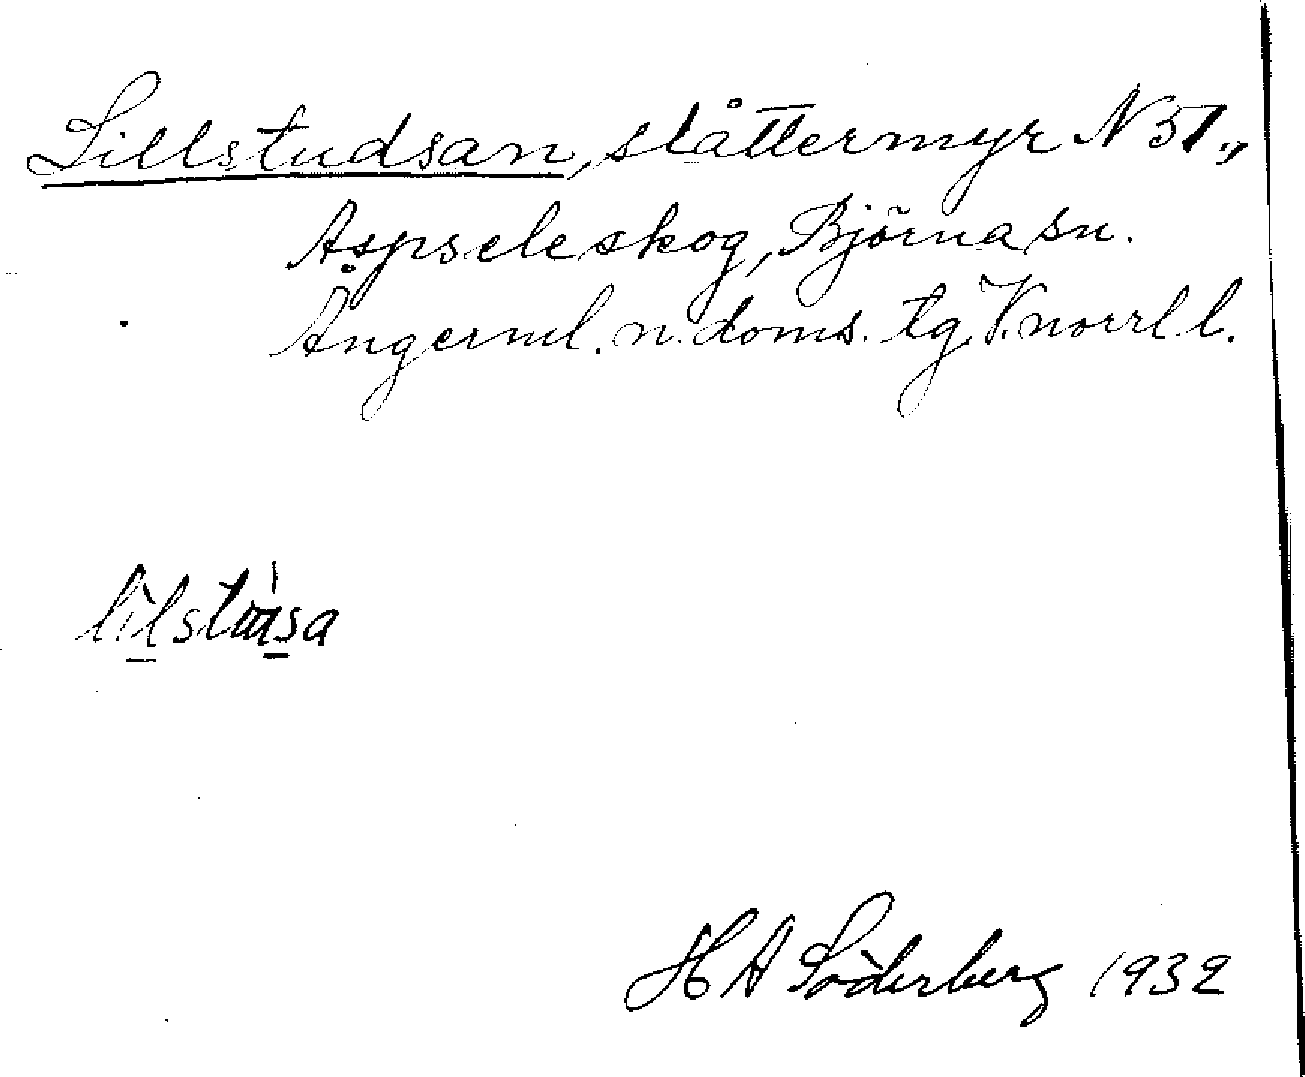 Lillstudsan, slåttermyr N 51.,
Aspseleskog, Björna sn.
Ångerml. n. doms. tg, V. norrl l.
H A Söderberg 1932